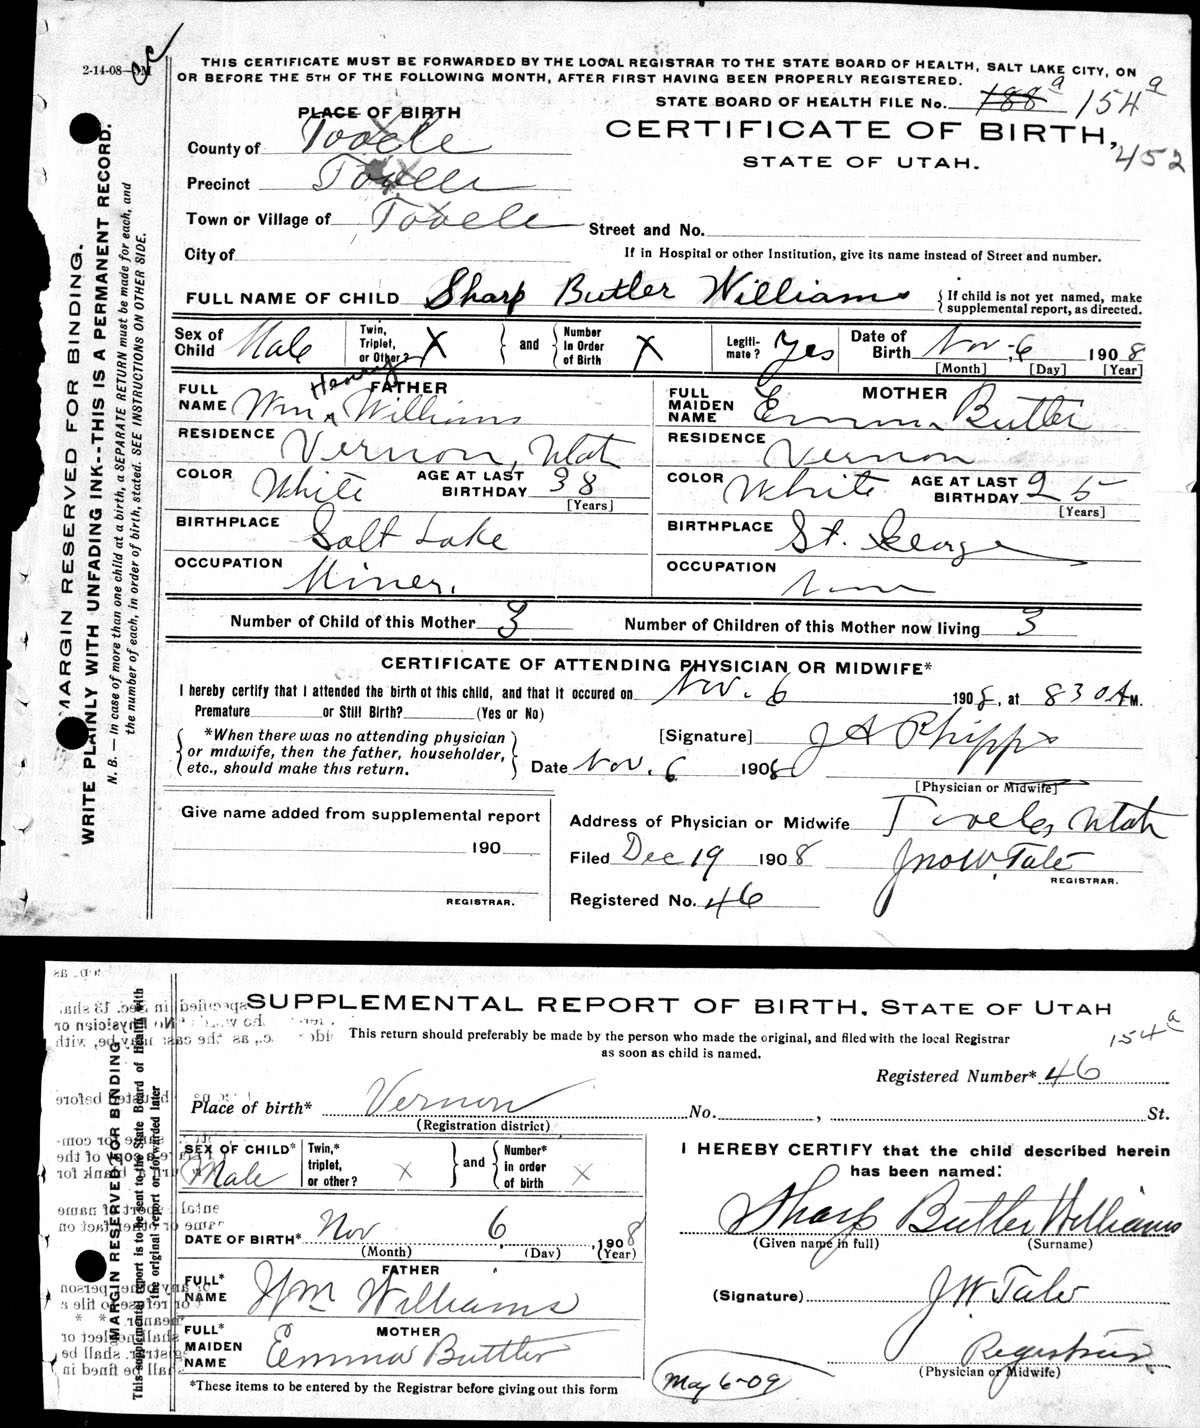 2-14-08—5M
THIS CERTIFICATE MUST BE FORWARDED BY THE LOCAL REGISTRAR TO THE STATE BOARD OF HEALTH, SALT LAKE CITY, ON
OR BEFORE THE 5TH OF THE FOLLOWING MONTH, AFTER FIRST HAVING BEEN PROPERLY REGISTERED.
STATE BOARD OF HEALTH FILE No. 188a 154a
PLACE OF BIRTH
CERTIFICATE OF BIRTH,
452
STATE OF UTAH.
County of Tooele
Precinct Tooele
Town or Village of Tooele
Street and No.
City of
If in Hospital or other Institution, give its name instead of Street and number.
FULL NAME OF CHILD Sharp Butler Williams
{ If child is not yet named, make
supplemental report, as directed.
Sex of Child Male
Twin, Triplet, or Other? X
and
Number in Order of Birth X
Legiti-mate? Yes
Date of Birth Nov. 6 1908
[Month] [Day] [Year]
FATHER
FULL NAME Wm Henry Williams
RESIDENCE Vernon, Utah
COLOR White
AGE AT LAST BIRTHDAY 38
[Years]
BIRTHPLACE Salt Lake
OCCUPATION Miner.
MOTHER
FULL MAIDEN NAME Emma Butler
RESIDENCE Vernon
COLOR White
AGE AT LAST BIRTHDAY 25
[Years]
BIRTHPLACE St. George
OCCUPATION
Number of Child of this Mother 3
Number of Children of this Mother now living 3
CERTIFICATE OF ATTENDING PHYSICIAN OR MIDWIFE*
I hereby certify that I attended the birth of this child, and that it occured on Nov. 6 1908, at 830 AM.
Premature or Still Birth? (Yes or No)
*When there was no attending physician
or midwife, then the father, householder,
etc., should make this return.
[Signature] J A Phipps
Date Nov. 6 1908
[Physician or Midwife]
Give name added from supplemental report
190
REGISTRAR.
Address of Physician or Midwife Tooele, Utah
Filed Dec 19 1908
Jno W. Tate
REGISTRAR.
Registered No. 46
MARGIN RESERVED FOR BINDING.
WRITE PLAINLY WITH UNFADING INK--THIS IS A PERMANENT RECORD.
N. B. — In case of more than one child at a birth, a SEPARATE RETURN must be made for each, and
the number of each, in order of birth, stated. SEE INSTRUCTIONS ON OTHER SIDE.
SUPPLEMENTAL REPORT OF BIRTH, STATE OF UTAH
This return should preferably be made by the person who made the original, and filed with the local Registrar
as soon as child is named.
154a
Registered Number* 46
Place of birth* Vernon No. , St.
(Registration district)
SEX OF CHILD* Male
Twin,* triplet, or other? X
and
Number* in order of birth X
DATE OF BIRTH* Nov 6, 1908
(Month) (Day) (Year)
FATHER
FULL* NAME Wm Williams
MOTHER
FULL* MAIDEN NAME Emma Buttler
*These items to be entered by the Registrar before giving out this form
I HEREBY CERTIFY that the child described herein
has been named:
Sharp Butler Williams
(Given name in full) (Surname)
(Signature) J. W. Tate
Registrar
(Physician or Midwife)
May 6-09
MARGIN RESERVED FOR BINDING
This supplemental report is to be sent to the State Board of Health with
the original report or forwarded later